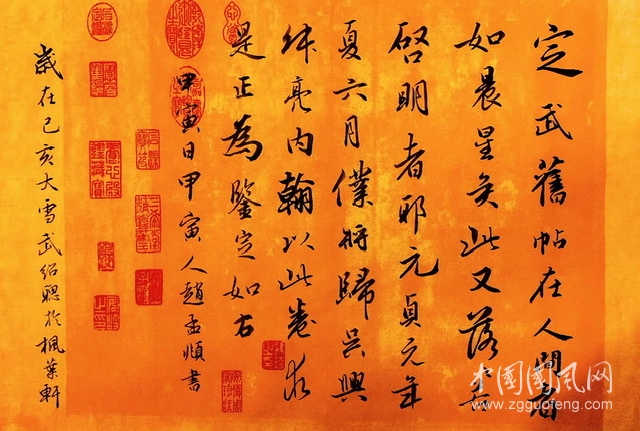 定武舊帖在人間者
如晨星矣此又落〻若
啓明者邪元貞元年
夏六月僕將歸吳興
叔亮内翰以此卷求
是正為鑒定如右
甲寅日甲寅人趙孟頫書
歲在己亥大雪武紹聰於楓葉軒
中国国风网
www.zgguofeng.com